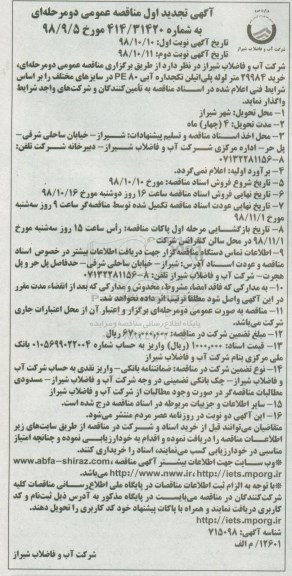 آگهی تجدید اول مناقصه عمومی دومرحله‌ای
به شماره ۴۱۴/۳۱۴۲۰ مورخ ۹۸/۹/۵
تاریخ آگهی نوبت اول: ۹۸/۱۰/۱۰
تاریخ آگهی نوبت دوم: ۹۸/۱۰/۱۱
شرکت آب و فاضلاب شیراز
شرکت آب و فاضلاب شیراز در نظر دارد از طریق برگزاری مناقصه عمومی دومرحله‌ای،
خرید ۲۹۹۸۴ متر لوله پلی‌اتیلن تکجداره آبی PE 80 در سایزهای مختلف را بر اساس
شرایط فنی اعلام شده در اسناد مناقصه به تأمین‌کنندگان و شرکت‌های واجد شرایط
واگذار نماید.
۱- محل تحویل: شهر شیراز
۲- مدت تحویل: ۴ (چهار) ماه
۳- محل اخذ اسناد مناقصه و تسلیم پیشنهادات: شیراز- خیابان ساحلی شرقی-
پل حر- اداره مرکزی شرکت آب و فاضلاب شیراز- دبیرخانه شرکت تلفن:
۰۷۱۳۲۲۸۱۱۵۶-۸
۴- برآورد اولیه: اعلام نمی‌گردد.
۵- تاریخ شروع فروش اسناد مناقصه: مورخ ۹۸/۱۰/۱۰
۶- تاریخ نهایی فروش اسناد مناقصه ساعت ۱۶ روز دوشنبه مورخ ۹۸/۱۰/۱۶
۷- تاریخ نهایی عودت اسناد مناقصه تکمیل شده توسط مناقصه‌گر ساعت ۹ روز سه‌شنبه
مورخ ۹۸/۱۱/۱
۸- تاریخ بازگشایی مرحله اول پاکات مناقصه: رأس ساعت ۱۵ روز سه‌شنبه مورخ
۹۸/۱۱/۱ در محل سالن کنفرانس شرکت
۹- اطلاعات تماس دستگاه مناقصه‌گزار جهت دریافت اطلاعات بیشتر در خصوص اسناد
مناقصه و عودت اسناد آدرس: شیراز- خیابان ساحلی شرقی- حدفاصل پل حر و پل
هجرت- شرکت آب و فاضلاب شیراز تلفن: ۸-۰۷۱۳۲۲۸۱۱۵۶
۱۰- به مدارکی که فاقد امضاء مشروط، مخدوش و مدارکی که بعد از انقضاء مدت مقرر
در این آگهی واصل شود مطلقا ترتیب اثر داده نخواهد شد.
۱۱- مناقصه به صورت عمومی دومرحله‌ای برگزار و اعتبار آن از محل اعتبارات جاری
شرکت می‌باشد.
۱۲- مبلغ تضمین شرکت در مناقصه: ۶۷۰،۰۰۰،۰۰۰ ریال
۱۳- قیمت اسناد: ۱،۰۰۰،۰۰۰ (ریال) واریز به حساب شماره ۰۱۰۵۶۹۹۰۲۲۰۰۴ بانک
ملی مرکزی بنام شرکت آب و فاضلاب شیراز
۱۴- نوع تضمین شرکت در مناقصه: ضمانتنامه بانکی- واریز نقدی به حساب شرکت آب
و فاضلاب شیراز- چک بانکی تضمینی در وجه شرکت آب و فاضلاب شیراز- مسدودی
مطالبات مناقصه‌گر در صورت وجود مطالبات از شرکت آب و فاضلاب شیراز
۱۵- سایر اطلاعات و جزییات مربوطه در اسناد مناقصه درج شده است.
۱۶- این آگهی دو نوبت در روزنامه عصر مردم منتشر می‌شود.
متقاضیان می‌توانند قبل از خرید اسناد و شرکت در مناقصه از طریق سایت‌های زیر
اطلاعات مناقصه را دریافت نموده و اقدام به خودارزیابی نموده و چنانچه امتیاز
مناسبی در خودارزیابی کسب می‌نمایند، اسناد را خریداری کنند.
*وب سایت جهت اطلاعات بیشتر آگهی مناقصه، www.abfa-shiraz.com
http://iets.mporg.ir و http://www.nww.ir می‌باشد.
*با توجه به الزام ثبت اطلاعات مناقصات در پایگاه ملی اطلاع‌رسانی مناقصات کلیه
شرکت‌کنندگان در مناقصه می‌بایست در پایگاه مذکور به آدرس ذیل ثبت‌نام و کد
کاربری دریافت نمایند و همراه با پاکات پیشنهاد خود کد کاربری را تحویل دهند.
http://iets.mporg.ir
شناسه آگهی: ۷۱۵۰۹۸
۱۲۶۰۱/ م الف
شرکت آب و فاضلاب شیراز